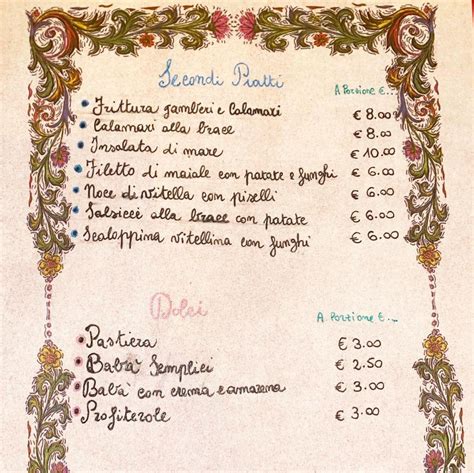 Secondi Piatti
A Porzione €...
Frittura gamberi e Calamari € 8.00
Calamari alla brace € 8.00
Insalata di mare € 10.00
Filetto di maiale con patate e funghi € 6.00
Noce di vitella con piselli € 6.00
Salsicce alla brace con patate € 6.00
Scaloppina vitellina con funghi € 6.00
Dolci
A Porzione €...
Pastiera € 3.00
Babà Semplici € 2.50
Babà con crema e amarena € 3.00
Profiterole € 3.00